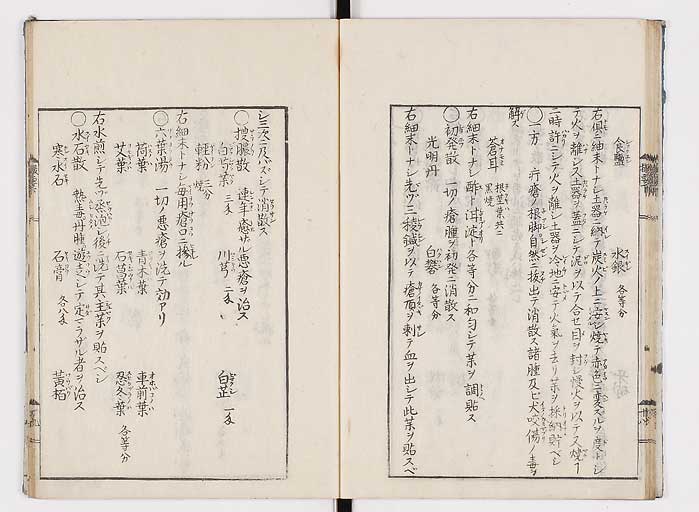 食鹽 水銀 各等分
右倶ニ細末トナシ土器ニ納テ炭火ノ上ニ安シ焼テ赤色ニ変スルヲ度トシ
テ火ヲ離シ土器ヲ蓋ニシテ泥ヲ以テ合セ目ヲ封シ慢火ヲ以テ又焼ヿ
二時許ニシテ火ヲ離シ土器ヲ冷地ニ安テ火氣ヲ去リ薬ヲ採納貯ベシ
○一方 疔瘡ノ根脚自然ニ抜出テ消散ス諸腫及ビ犬咬傷ノ毒ヲ
解ス
蒼耳 根茎葉共ニ黒焼
右細末トナシ酢ト泔淀ト各等分ニ和匀シテ薬ヲ調貼ス
○初発散 一切ノ瘡腫ヲ初発ニ消散ス
光明丹 白礬 各等分
右細末トナシ先ヅ三稜鍼ヲ以テ瘡頂ヲ刺テ血ヲ出シテ此薬ヲ貼スベ
シ三次ニ及バズシテ消散ス
○搜膿散 連年癒ザル悪瘡ヲ治ス
白芷葉 三匁 川芎 二匁 白芷 一匁
軽粉 三分 焼
右細末トナシ毎用瘡口ニ摻ル
○六葉湯 一切ノ悪瘡ヲ洗テ効アリ
荷葉 青木葉 車前葉
艾葉 石菖葉 忍冬葉 各等分
右水煎シテ先ヅ滲泄シ後ニ洗テ其主薬ヲ貼スベシ
○水石散 熱毒丹腫遊走シテ定マラザル者ヲ治ス
寒水石 石膏 各八匁 黄栢